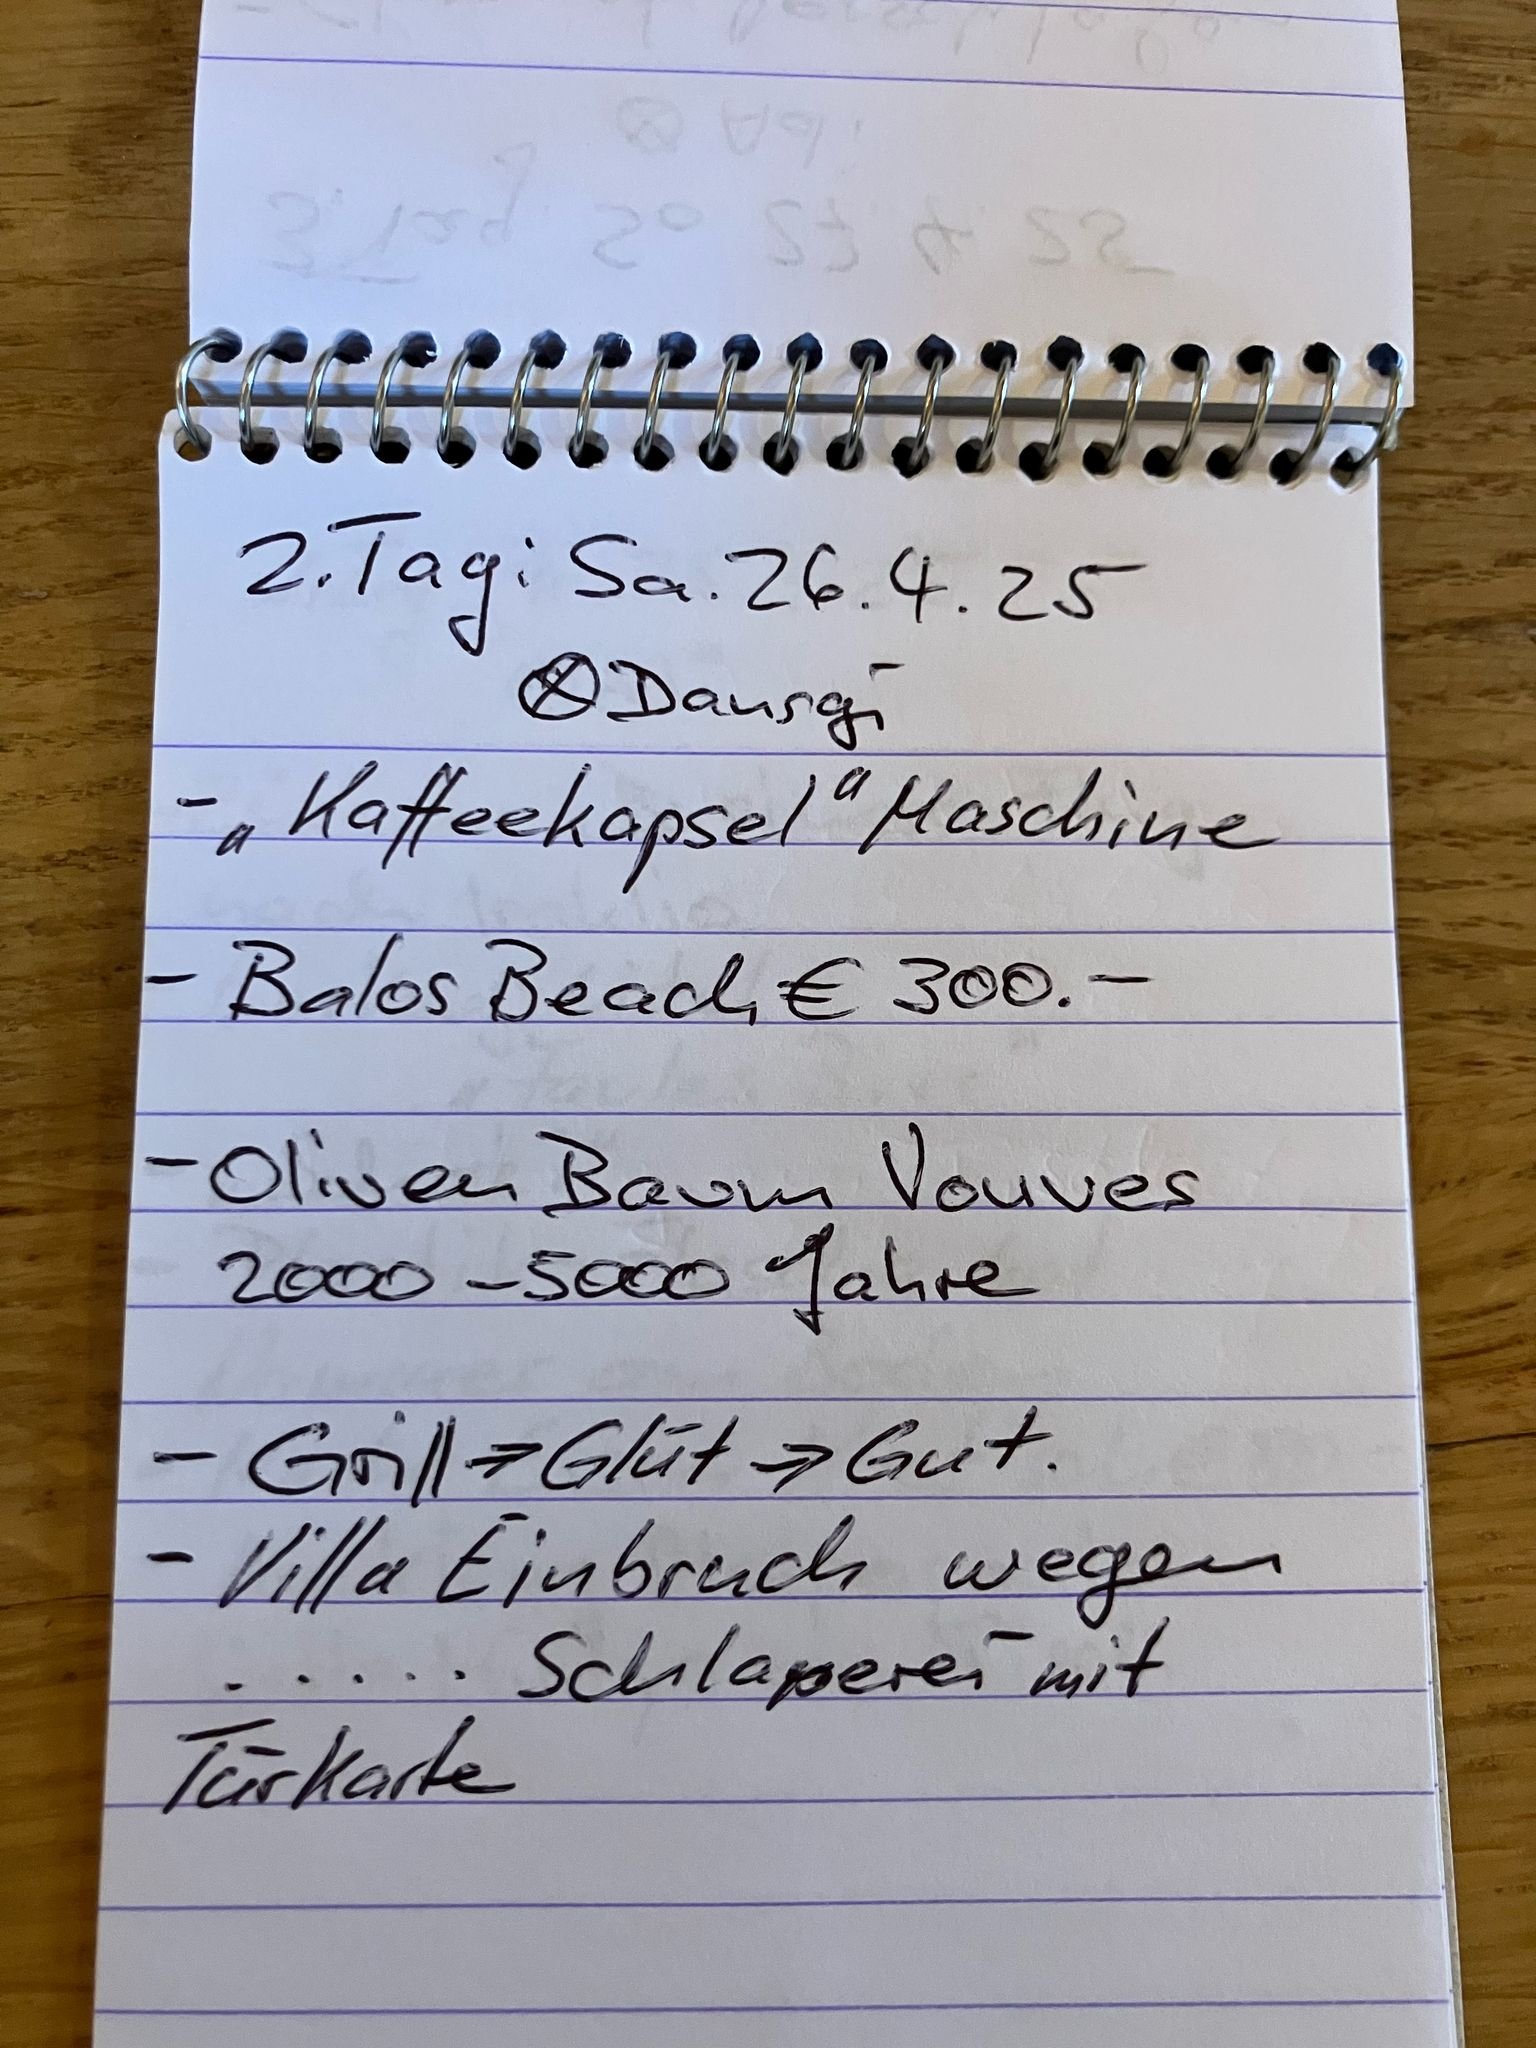 2. Tag: Sa. 26.4.25
⊗ Dansgi
- „Kaffeekapsel“ Maschine
- Balos Beach € 300.–
- Oliven Baum Vouves
2000 – 5000 Jahre
- Grill → Glut → Gut.
- Villa Einbruch wegen
. . . . . . Schlaperei mit
Türkarte